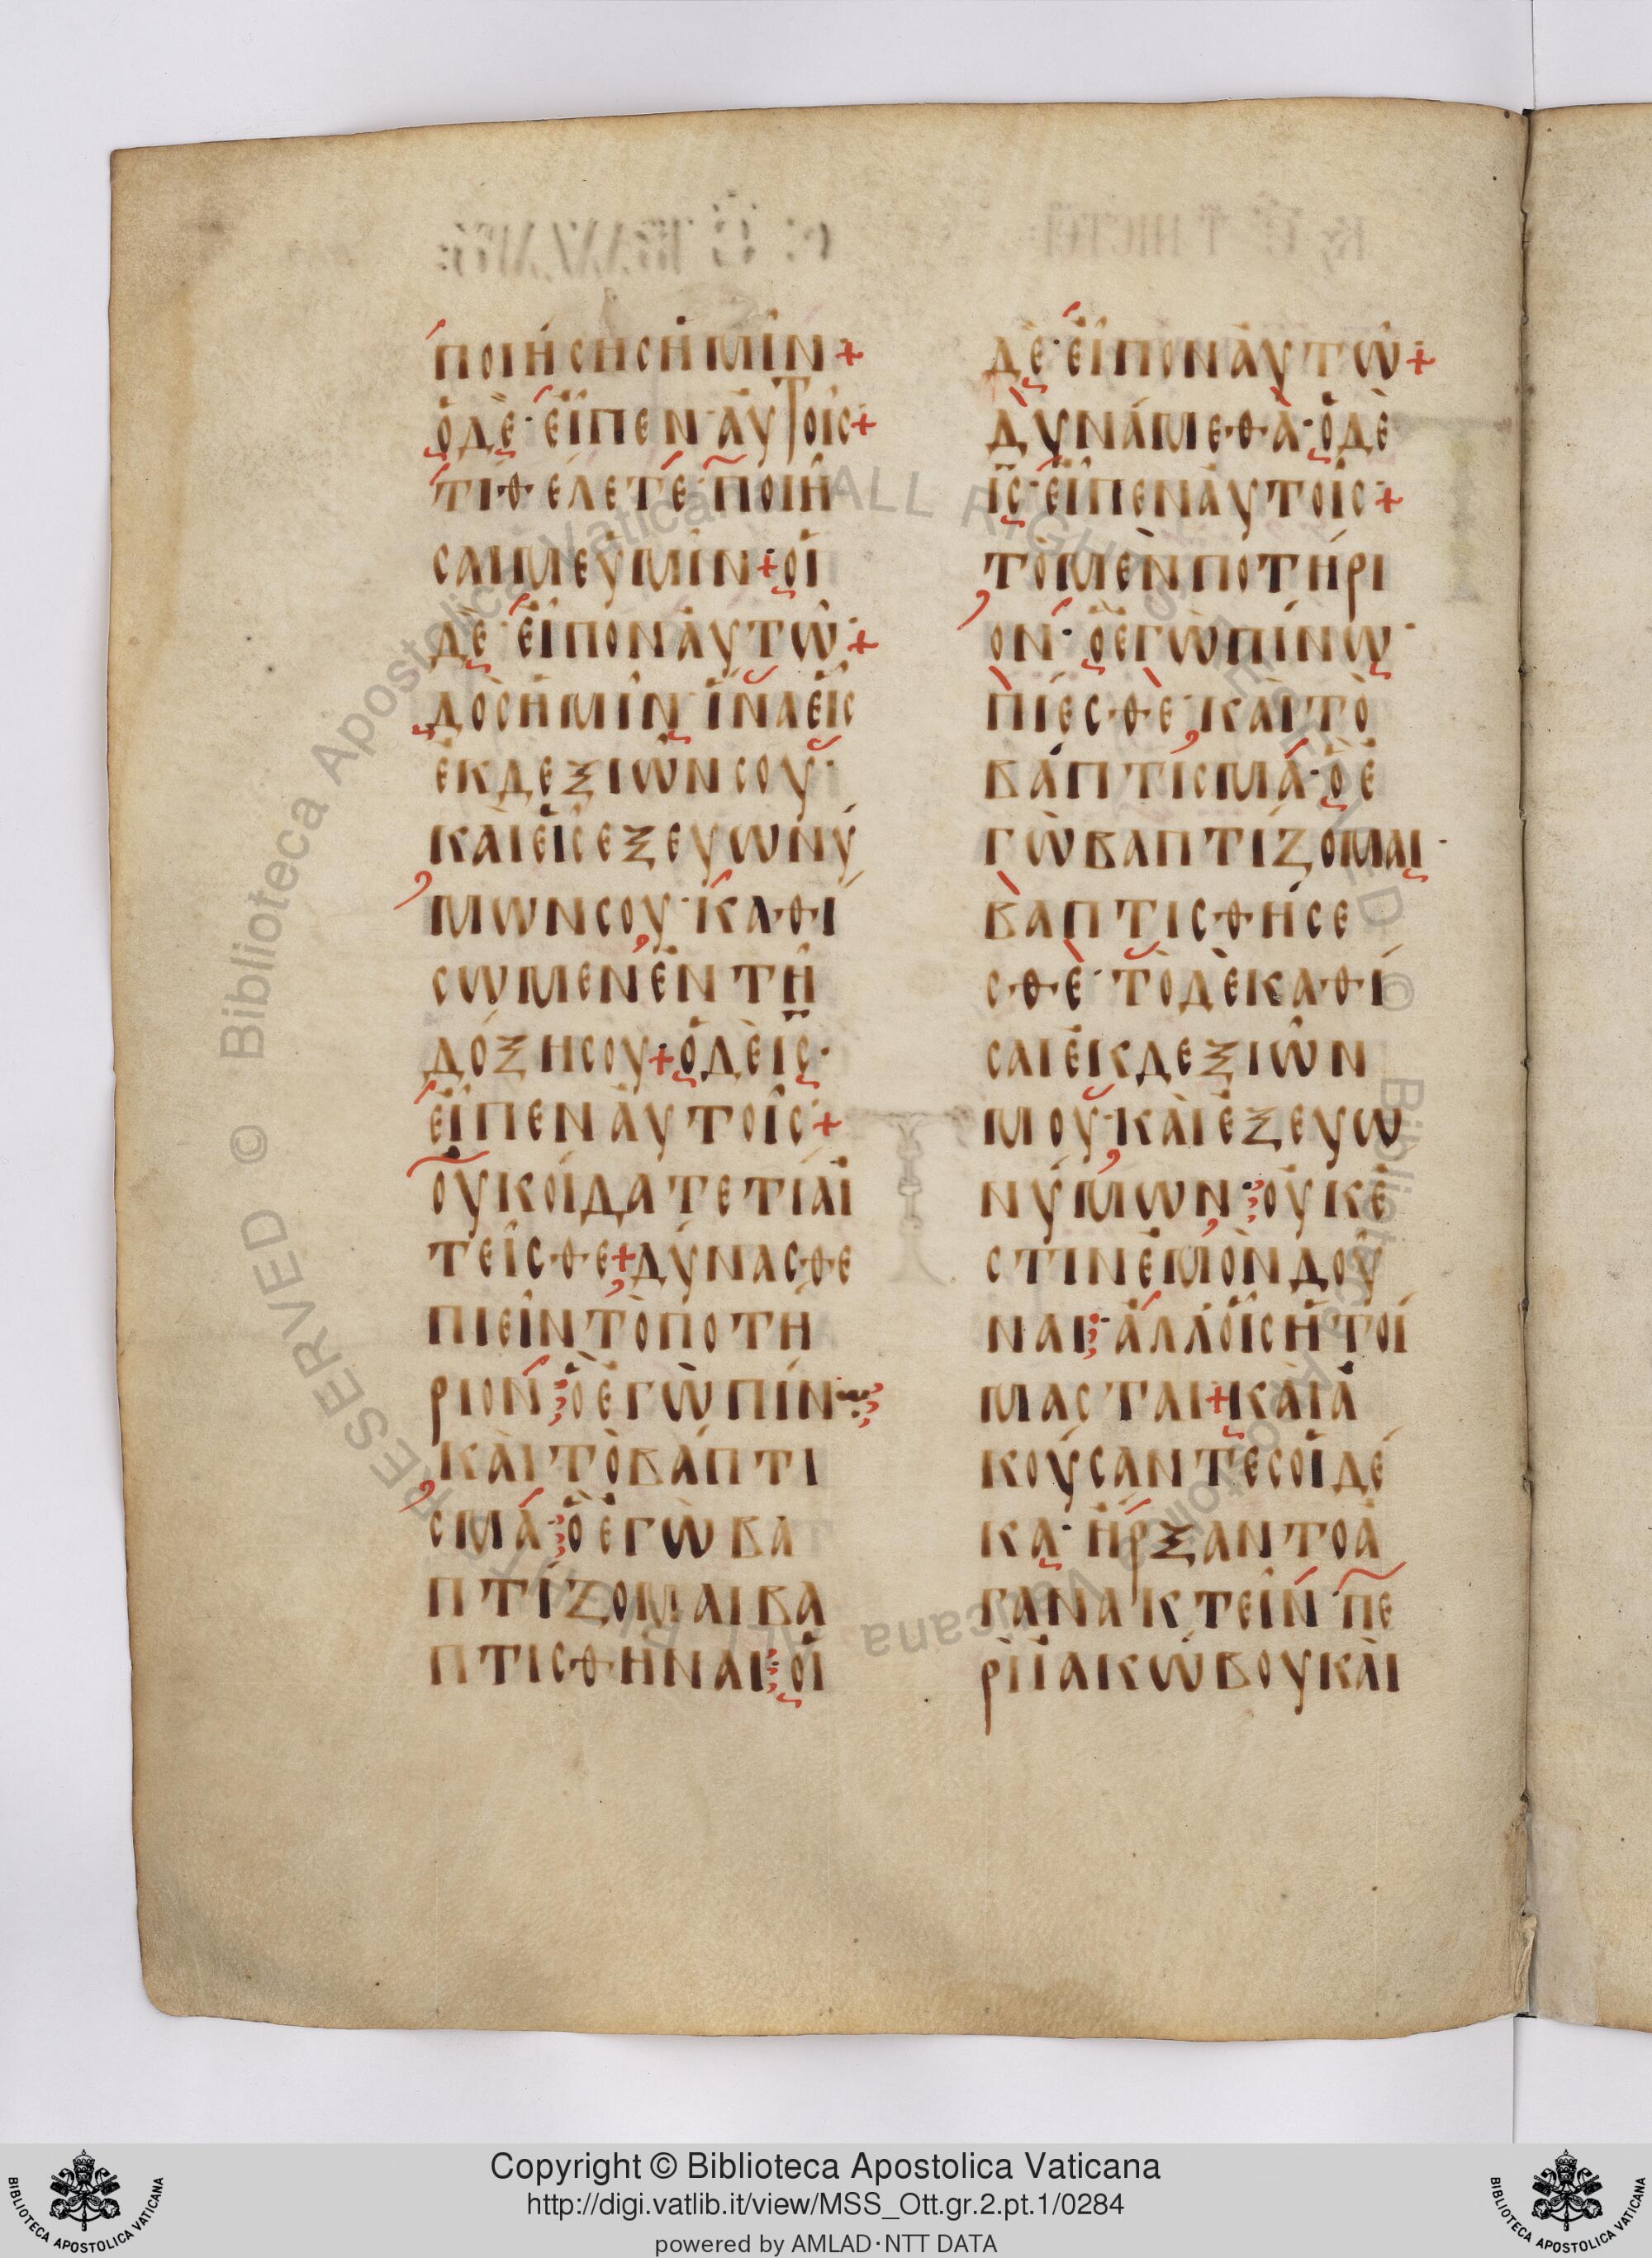 ποιήσῃς ἡμῖν+
ὁ δὲ· εἶπεν αὐτοῖς+
τί θέλετέ ποιῆ
σαί με ὑμῖν+ οἱ
δὲ· εἶπον αὐτῶ·+
δὸς ἡμῖν ἵνα εἷς
ἐκ δεξιῶν σου·
καὶ εἷς ἐξ εὐωνύ
μων σου· καθί
σωμεν ἐν τῆ
δόξη σου+ ὁ δὲ ἰς̅·
εἶπεν αὐτοῖς·+
οὐκ οἴδατε τί αἰ
τεῖσθε+ δύνασθε
πιεῖν τὸ ποτή
ριον· ὃ ἐγὼ πίνω·
καὶ τὸ βάπτι
σμα· ὃ ἐγὼ βα
πτίζομαι βα
πτισθῆναι· οἱ
δὲ· εἶπον αὐτῶ+
δυνάμεθα· ὁ δὲ
ἰς̅· εἶπεν αὐτοῖς+
τὸ μὲν ποτήρι
ον· ὃ ἐγὼ πίνω·
πίεσθε· καὶ τὸ
βάπτισμα· ὃ ἐ
γὼ βαπτίζομαι·
βαπτισθήσε
σθε· τὸ δὲ καθί
σαι ἐκ δεξιῶν
μου· καὶ ἐξ εὐω
νύμων· οὐκ ἔ
στιν ἐμὸν δοῦ
ναι· ἀλλ' οἷς ἡτοί
μασται+ καὶ ἀ
κούσαντες οἱ δέ
κα· ἤρξαντο ἀ
γανακτεῖν πε
ρὶ ἰακώβου καὶ
Biblioteca Apostolica Vaticana ALL RIGHTS RESERVED ©
Copyright © Biblioteca Apostolica Vaticana
http://digi.vatlib.it/view/MSS_Ott.gr.2.pt.1/0284
powered by AMLAD·NTT DATA
BIBLIOTECA APOSTOLICA VATICANA
BIBLIOTECA APOSTOLICA VATICANA